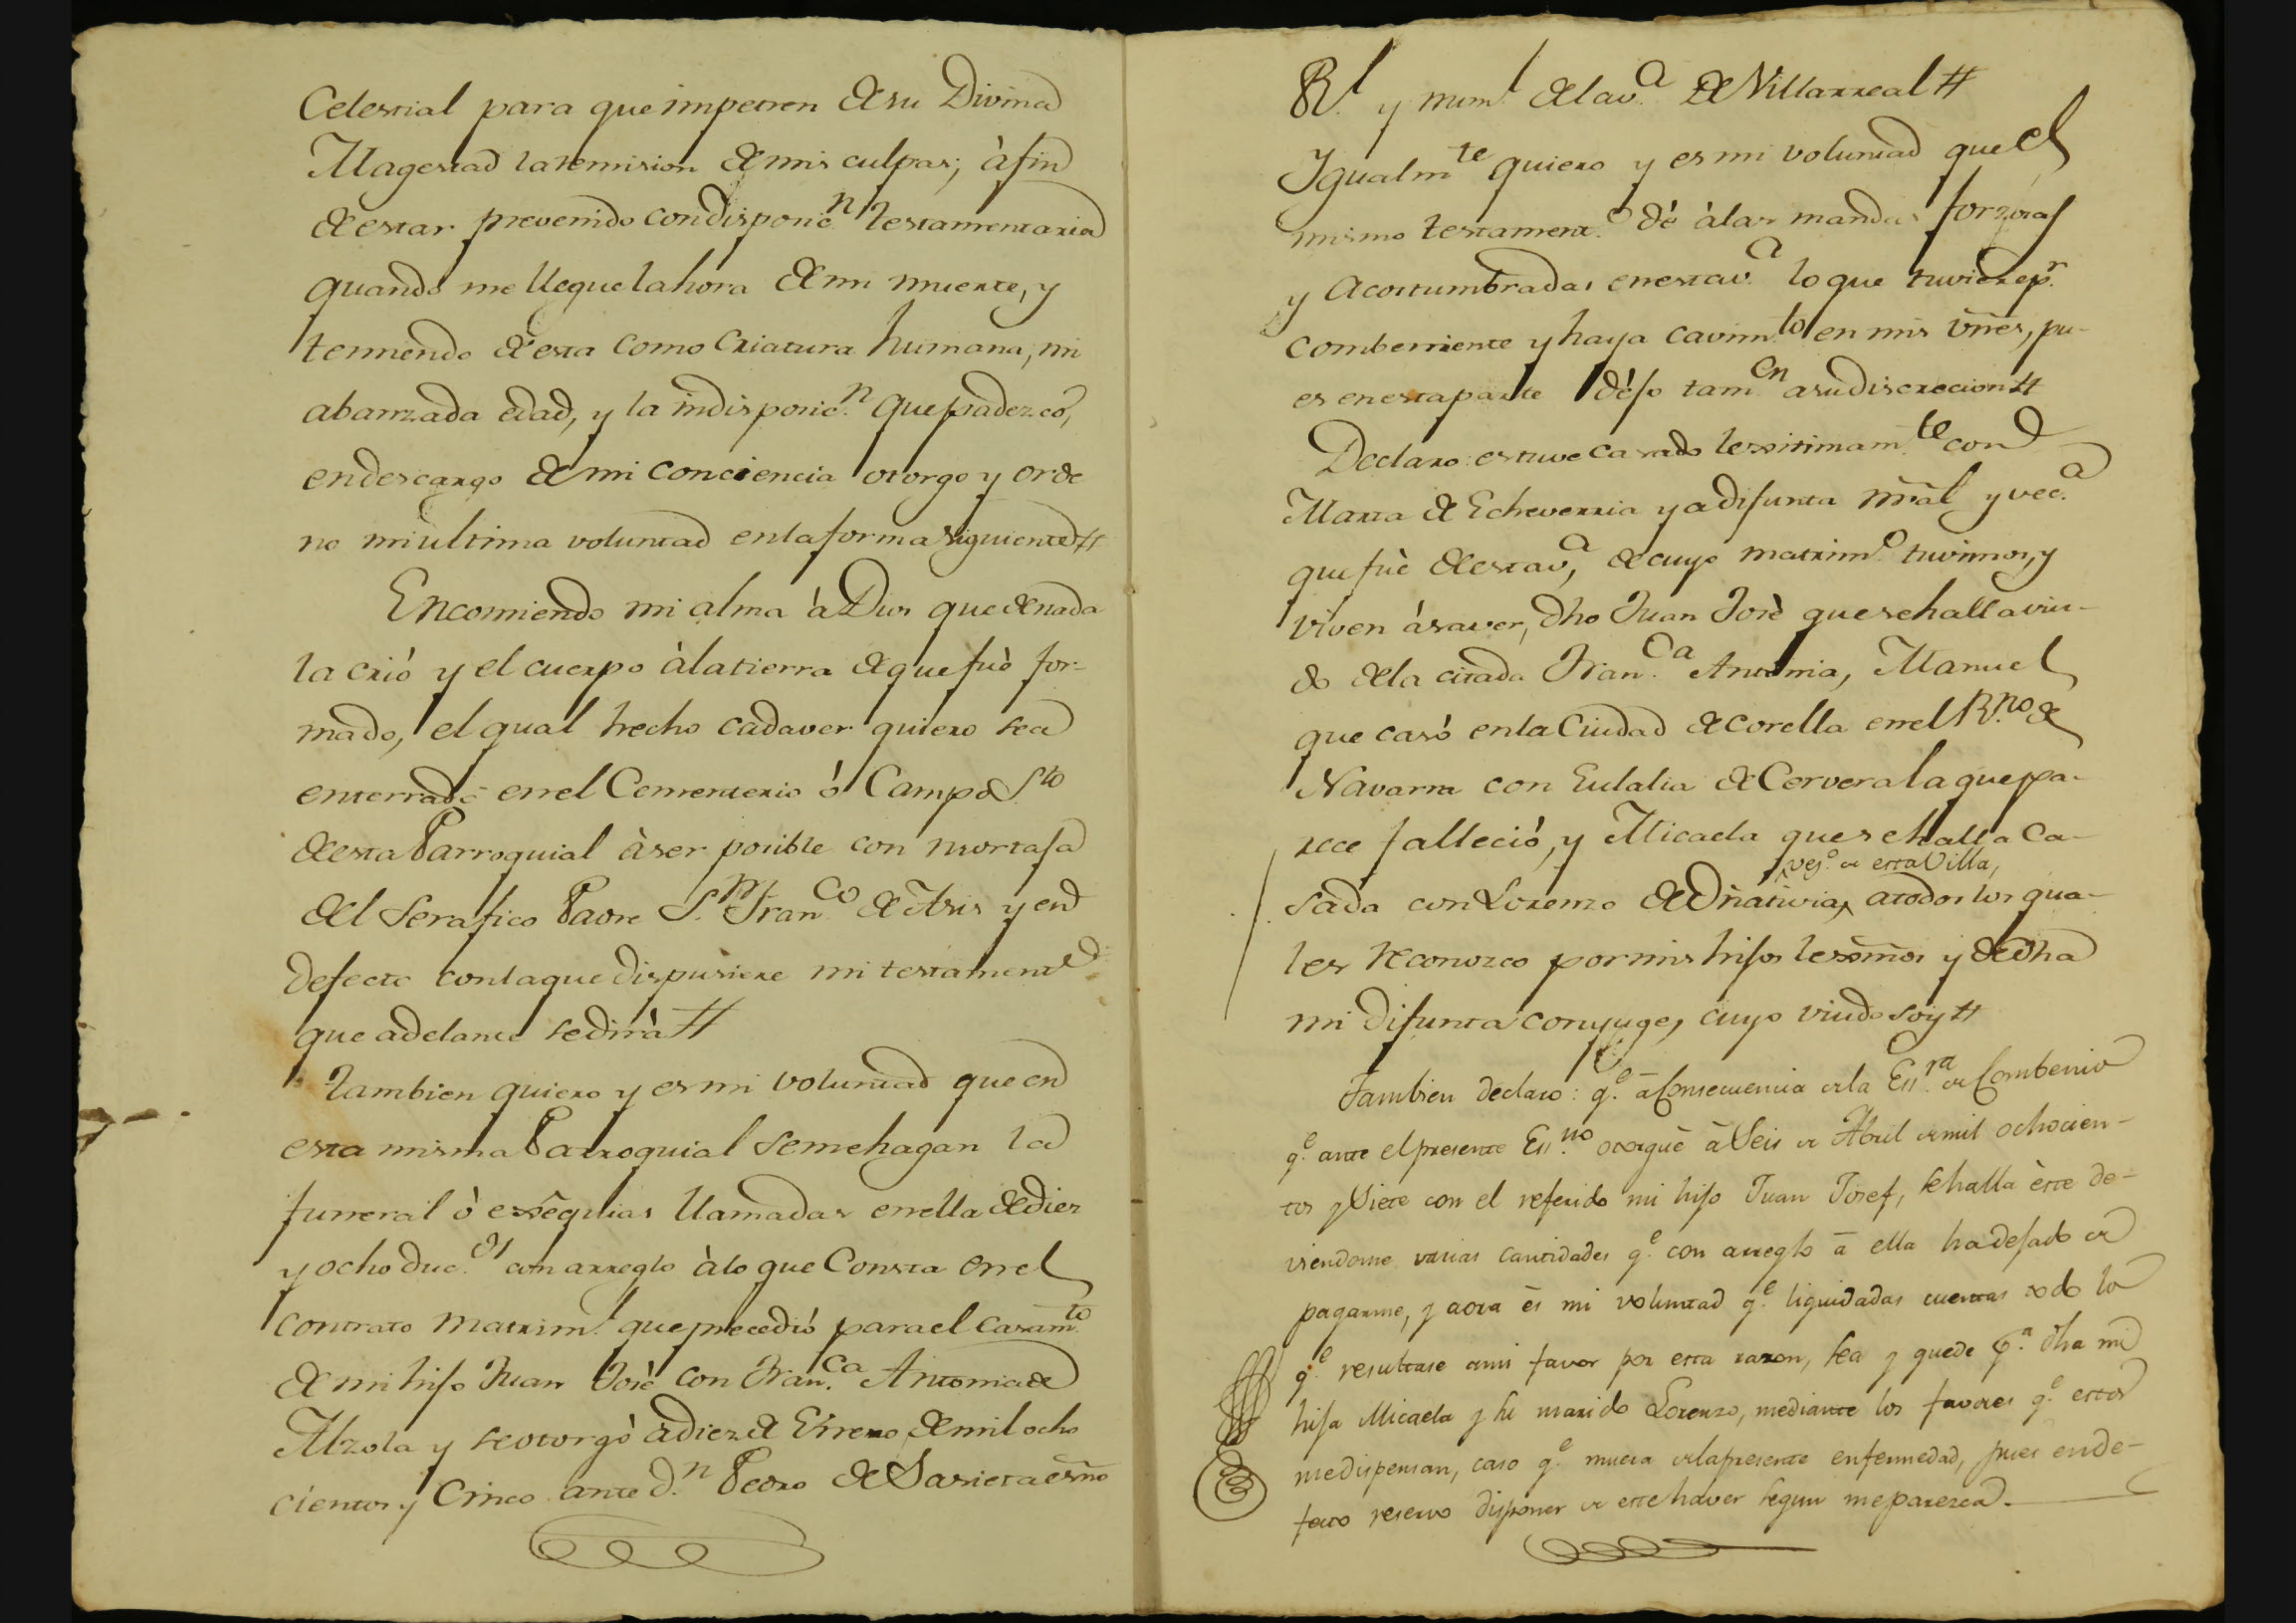 Celestial para que impetren de su Divina
Magestad la remision de mis culpas; à fin
de estar prevenido con disposic.n testamentaria
quando me llegue la hora de mi muerte, y
temiendo de esta como Criatura humana, mi
abanzada edad, y la indisposic.n que padezco,
en descargo de mi conciencia otorgo y orde
no mi ultima voluntad en la forma siguiente #
Encomiendo mi alma à Dios que de nada
la crió y el cuerpo à la tierra de que fuè for-
mado, el qual hecho cadaver quiero sea
enterrado en el Cementerio ó Campo S.to
de esta Parroquial à ser posible con mortaja
del Serafico Padre S.n Fran.co de Asis y en
defecto con la que dispusiere mi testament.o
que adelante se dirà #
Tambien quiero y es mi voluntad que en
esta misma Parroquial se me hagan la
funeral ò exêquias llamadas en ella de diez
y ocho duc.os con arreglo à lo que Consta en el
contrato matrim.l que precedió para el Casam.to
de mi hijo Juan José con Fran.ca Antonia de
Alzola y se otorgò à diez de Enero de mil ocho
cientos y Cinco ante d.n Pedro de Sarieta esño
R.l y num.l de la v.a de Villarreal #
Igualm.te quiero y es mi voluntad que el
mismo testament.o dè à las mandas forzosas
y acostumbradas en esta v.a lo que tuviere p.r
combeniente y haya cavim.to en mis vñes, pu-
es en esta parte dèjo tam.en a su discrecion #
Declaro estuve casado lexitimam.te con
Maria de Echeverria ya difunta ñral y vec.a
que fuè de esta v.a, de cuyo matrim.o tuvimos, y
viven à saver, dho Juan Josè que se halla viu-
do de la citada Fran.ca Antonia, Manuel
que casó en la Ciudad de Corella en el R.no de
Navarra con Eulalia de Cervera la que pa-
rece falleció, y Micaela que se halla Ca-
vez.o de esta Villa,
sada con Lorenzo de a todos los qua-
les reconozco por mis hijos lexmos y de dha
mi difunta conyuge, cuyo viudo soy #
Tambien declaro: q.e à Consecuencia de la Ess.ra de Combenio
q.e ante el presente Ess.no otorguè à Seis de Abril de mil ochocien-
tos y Siete con el referido mi hijo Juan Josef, se halla èste de-
viendome varias cantidades q.e con arreglo à ella ha dejado de
pagarme, y aora ès mi voluntad q.e liquidadas cuentas todo lo
q.e resultase a mi favor por esta razon, sea y quede p.a dha mi
hija Micaela y su marido Lorenzo, mediante los favores q.e estos
me dispensan, caso q.e muera de la presente enfermedad, pues en de-
fecto reservo disponer de este haver segun me parezca.